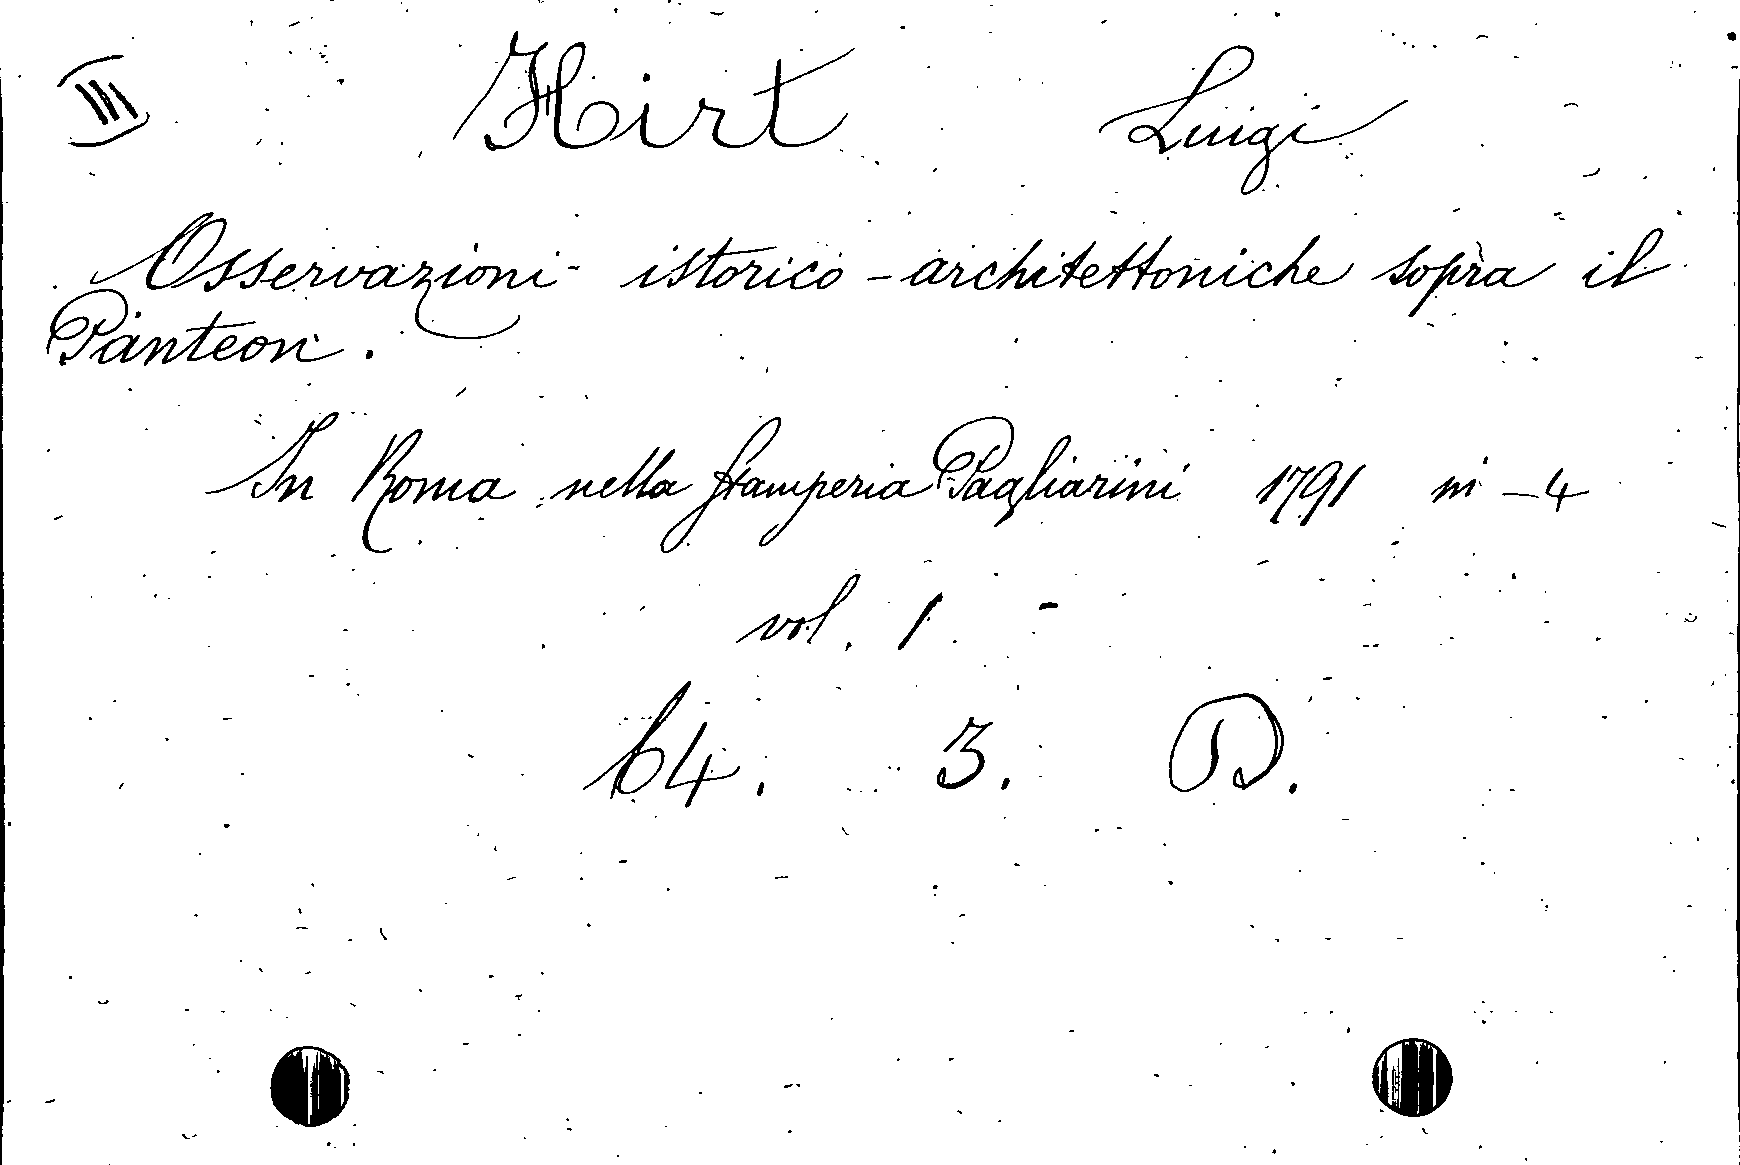 III Hirt Luigi
Osservazioni istorico-architettoniche sopra il
Panteon.
In Roma nella Stamperia Pagliarini 1791 in-4
vol. 1.
64. 3. D.